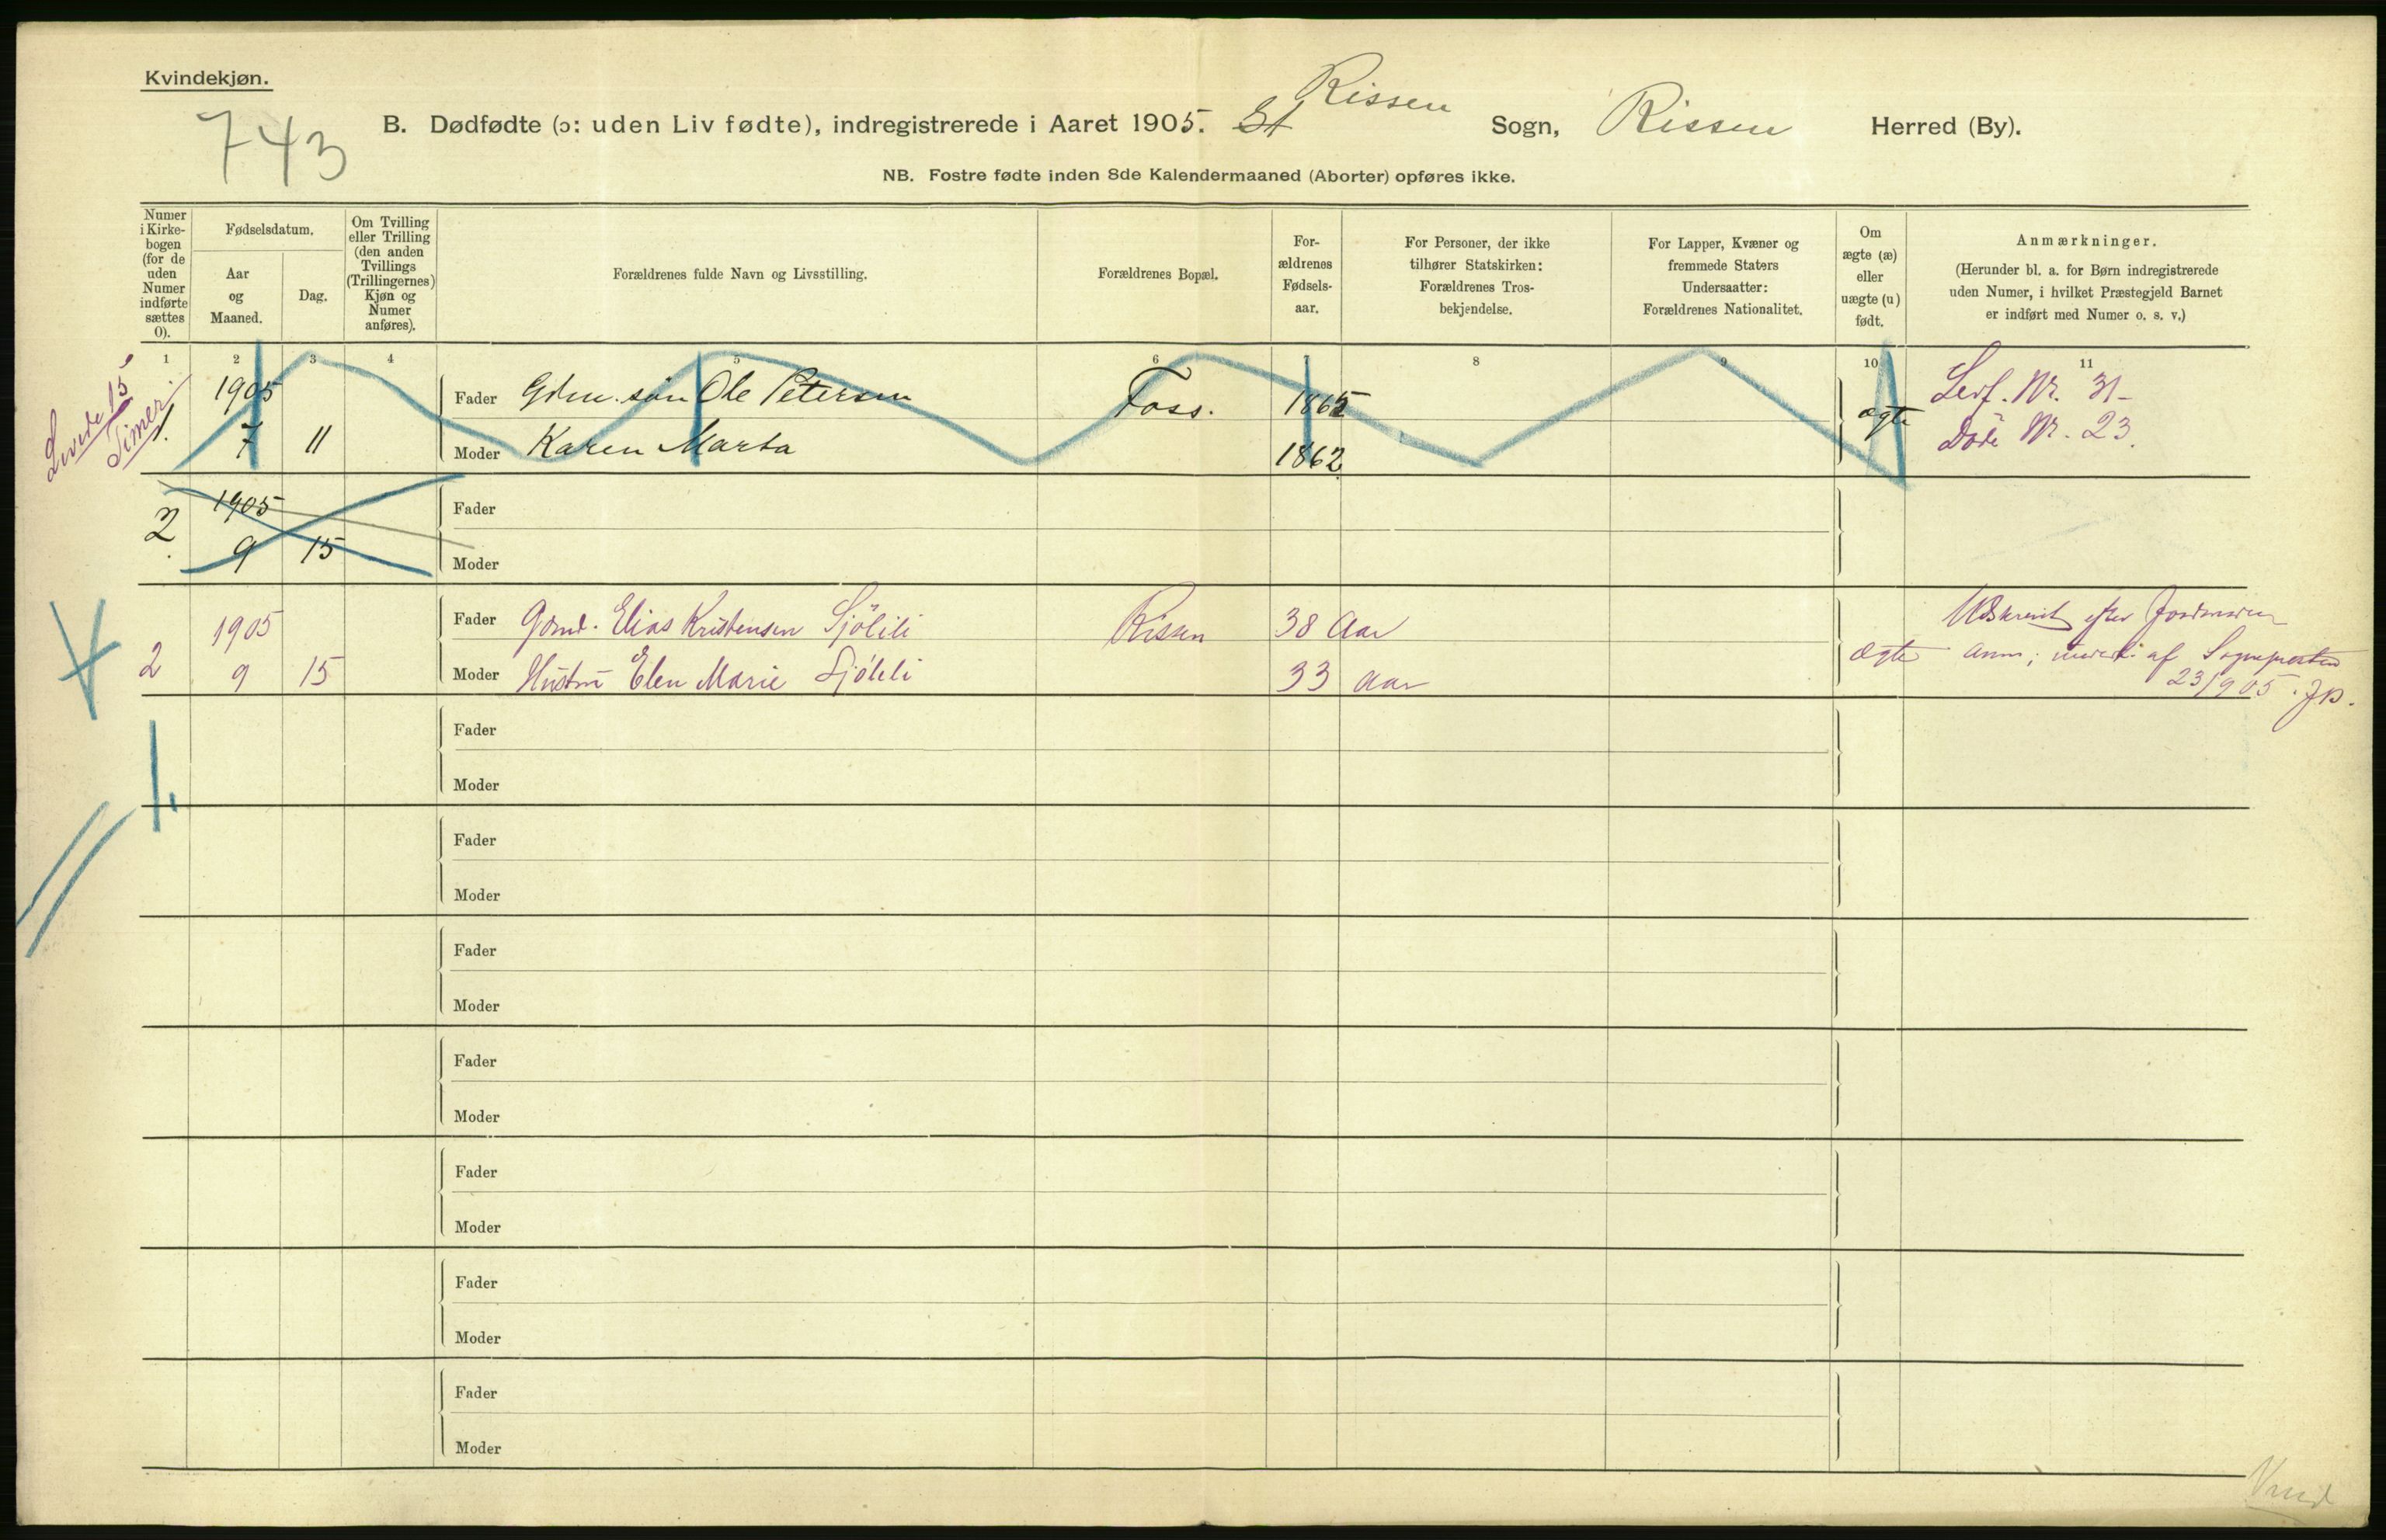 Kvindekjøn.
743
B. Dødfødte (ɔ: uden Liv fødte), indregistrerede i Aaret 1905. St Rissen Sogn, Rissen Herred (By).
NB. Fostre fødte inden 8de Kalendermaaned (Aborter) opføres ikke.
Numer i Kirke-bogen (for de uden Numer indførte sættes 0).
Fødselsdatum.
Aar og Maaned.
Dag.
Om Tvilling eller Trilling (den anden Tvillings (Trillingernes) Kjøn og Numer anføres).
Forældrenes fulde Navn og Livsstilling.
Forældrenes Bopæl.
For-ældrenes Fødsels-aar.
For Personer, der ikke tilhører Statskirken: Forældrenes Tros-bekjendelse.
For Lapper, Kvæner og fremmede Staters Undersaatter: Forældrenes Nationalitet.
Om ægte (æ) eller uægte (u) født.
Anmærkninger.
(Herunder bl. a. for Børn indregistrerede uden Numer, i hvilket Præstegjeld Barnet er indført med Numer o. s. v.)
1 2 3 4 5 6 7 8 9 10 11
Levede 15 Timer
1. 1905 Fader Gdm. søn Ole Petersen Foss. 1865 ægte Levf. Nr. 31-
7 11 Moder Karen Marta 1862 Døde Nr. 23.
2. 1905 Fader
9 15 Moder
1905 Fader Gdmd. Elias Kristensen Sjölili Rissen 38 Aar Udskrevet efter
2 9 15 Moder Hustru Elen Marie Sjölili 33 Aar Ægte af Sognepresten
23/9 05.
Fader
Moder
Fader
Moder
Fader
Moder
Fader
Moder
Fader
Moder
Fader
Moder
Fader
Moder